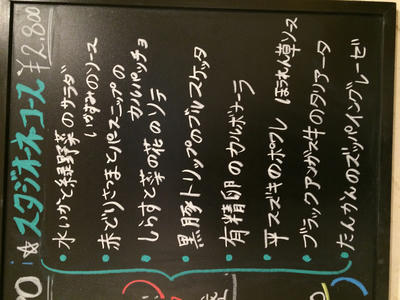 ☆スタジオネコース ¥2,800
・水いかと緑野菜のサラダ
いかすみのソース
・赤どりさつまとパースニップの
カルパッチョ
・しらすと菜の花のソテ
・黒豚トリップのブルスケッタ
・有精卵のカルボナーラ
・平スズキのポワレ ほうれん草ソース
・ブラックアンガス牛のタリアータ
・たんかんのズッパイングレーゼ